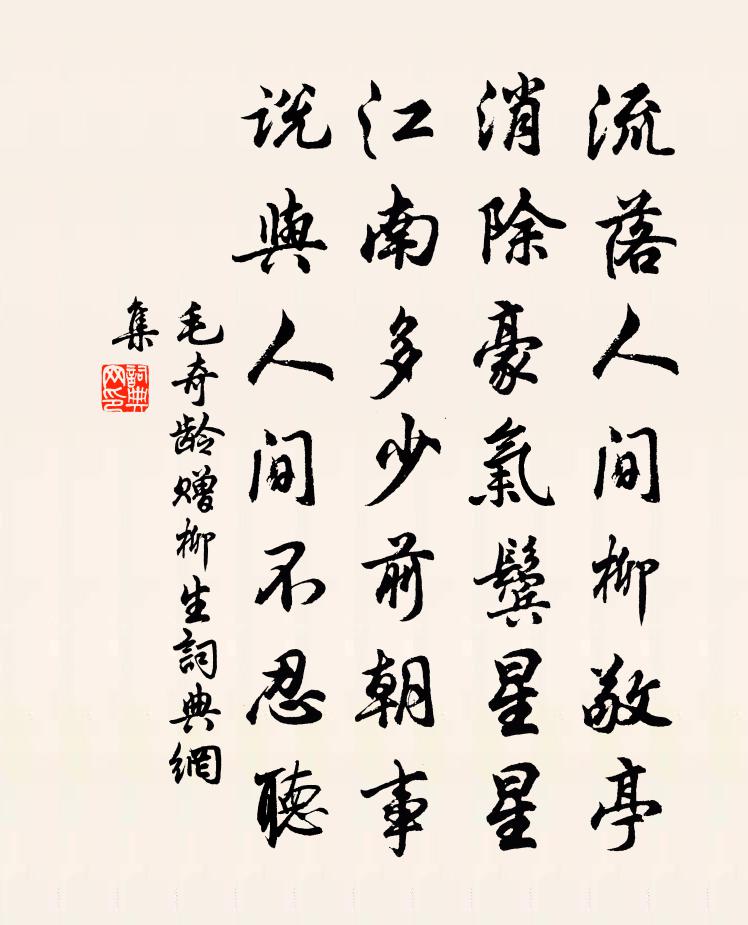 流落人间柳敬亭
消除豪氣鬓星星
江南多少前朝事
说與人间不忍聽
毛奇龄赠柳生詞典網
集
詞典
网印